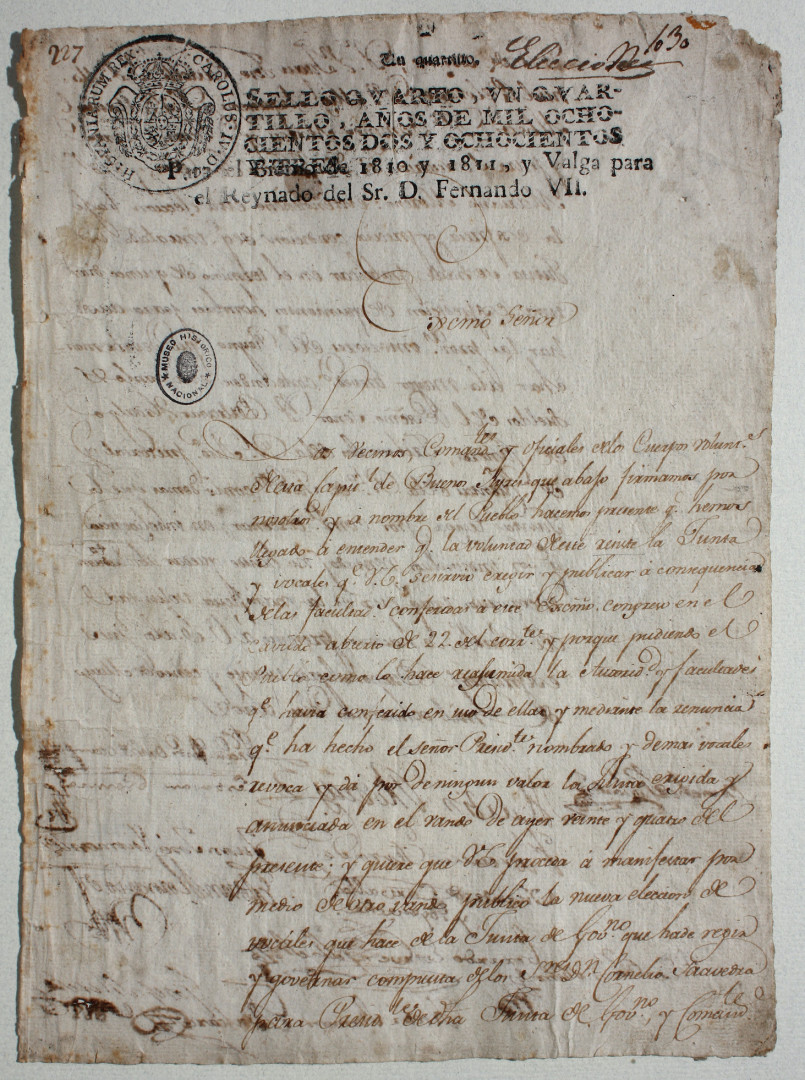 227
Elecciones
1630
Un quartillo.
HISPANIARUM REX
CAROLUS IV D
SELLO QVARTO, VN QVAR-
TILLO, AÑOS DE MIL OCHO-
CIENTOS DOS Y OCHOCIENTOS
Y TRES.
Para el de 1810 y 1811, y Valga para
el Reynado del Sr. D. Fernando VII.
Excmo Señor
MUSEO HISTORICO NACIONAL
Los Vecinos Comand.tes y oficiales de los Cuerpos volunt.s
de esta Capit.l de Buenos Ayres que abajo firmamos por
nosotros y á nombre del Pueblo hacemos presente q.e hemos
llegado á entender q.e la voluntad de este resiste la Junta
y vocales q.e V.E. se sirvio erigir y publicar á consequencia
de las facultad.s conferidas á este Excmo. congreso en el
cavildo abierto de 22 del corr.te y porque pudiendo el
Pueblo como lo hace reasumida la autorid.d y facultades
q.e havia conferido en uso de ellas y mediante la renuncia
q.e ha hecho el señor Presid.te nombrado y demas vocales
revoca y dá por de ningun valor la Junta erigida y
anunciada en el vando de ayer veinte y quatro del
presente; y quiere que V.E. proceda á manifestar por
medio de otro vando publico la nueva eleccion de
vocales que hace de la Junta de Gov.no que ha de regir
y governar compuesta de los S.res D.n Cornelio Saavedra
para Presid.te de dha Junta de Gov.no, y Comand.te